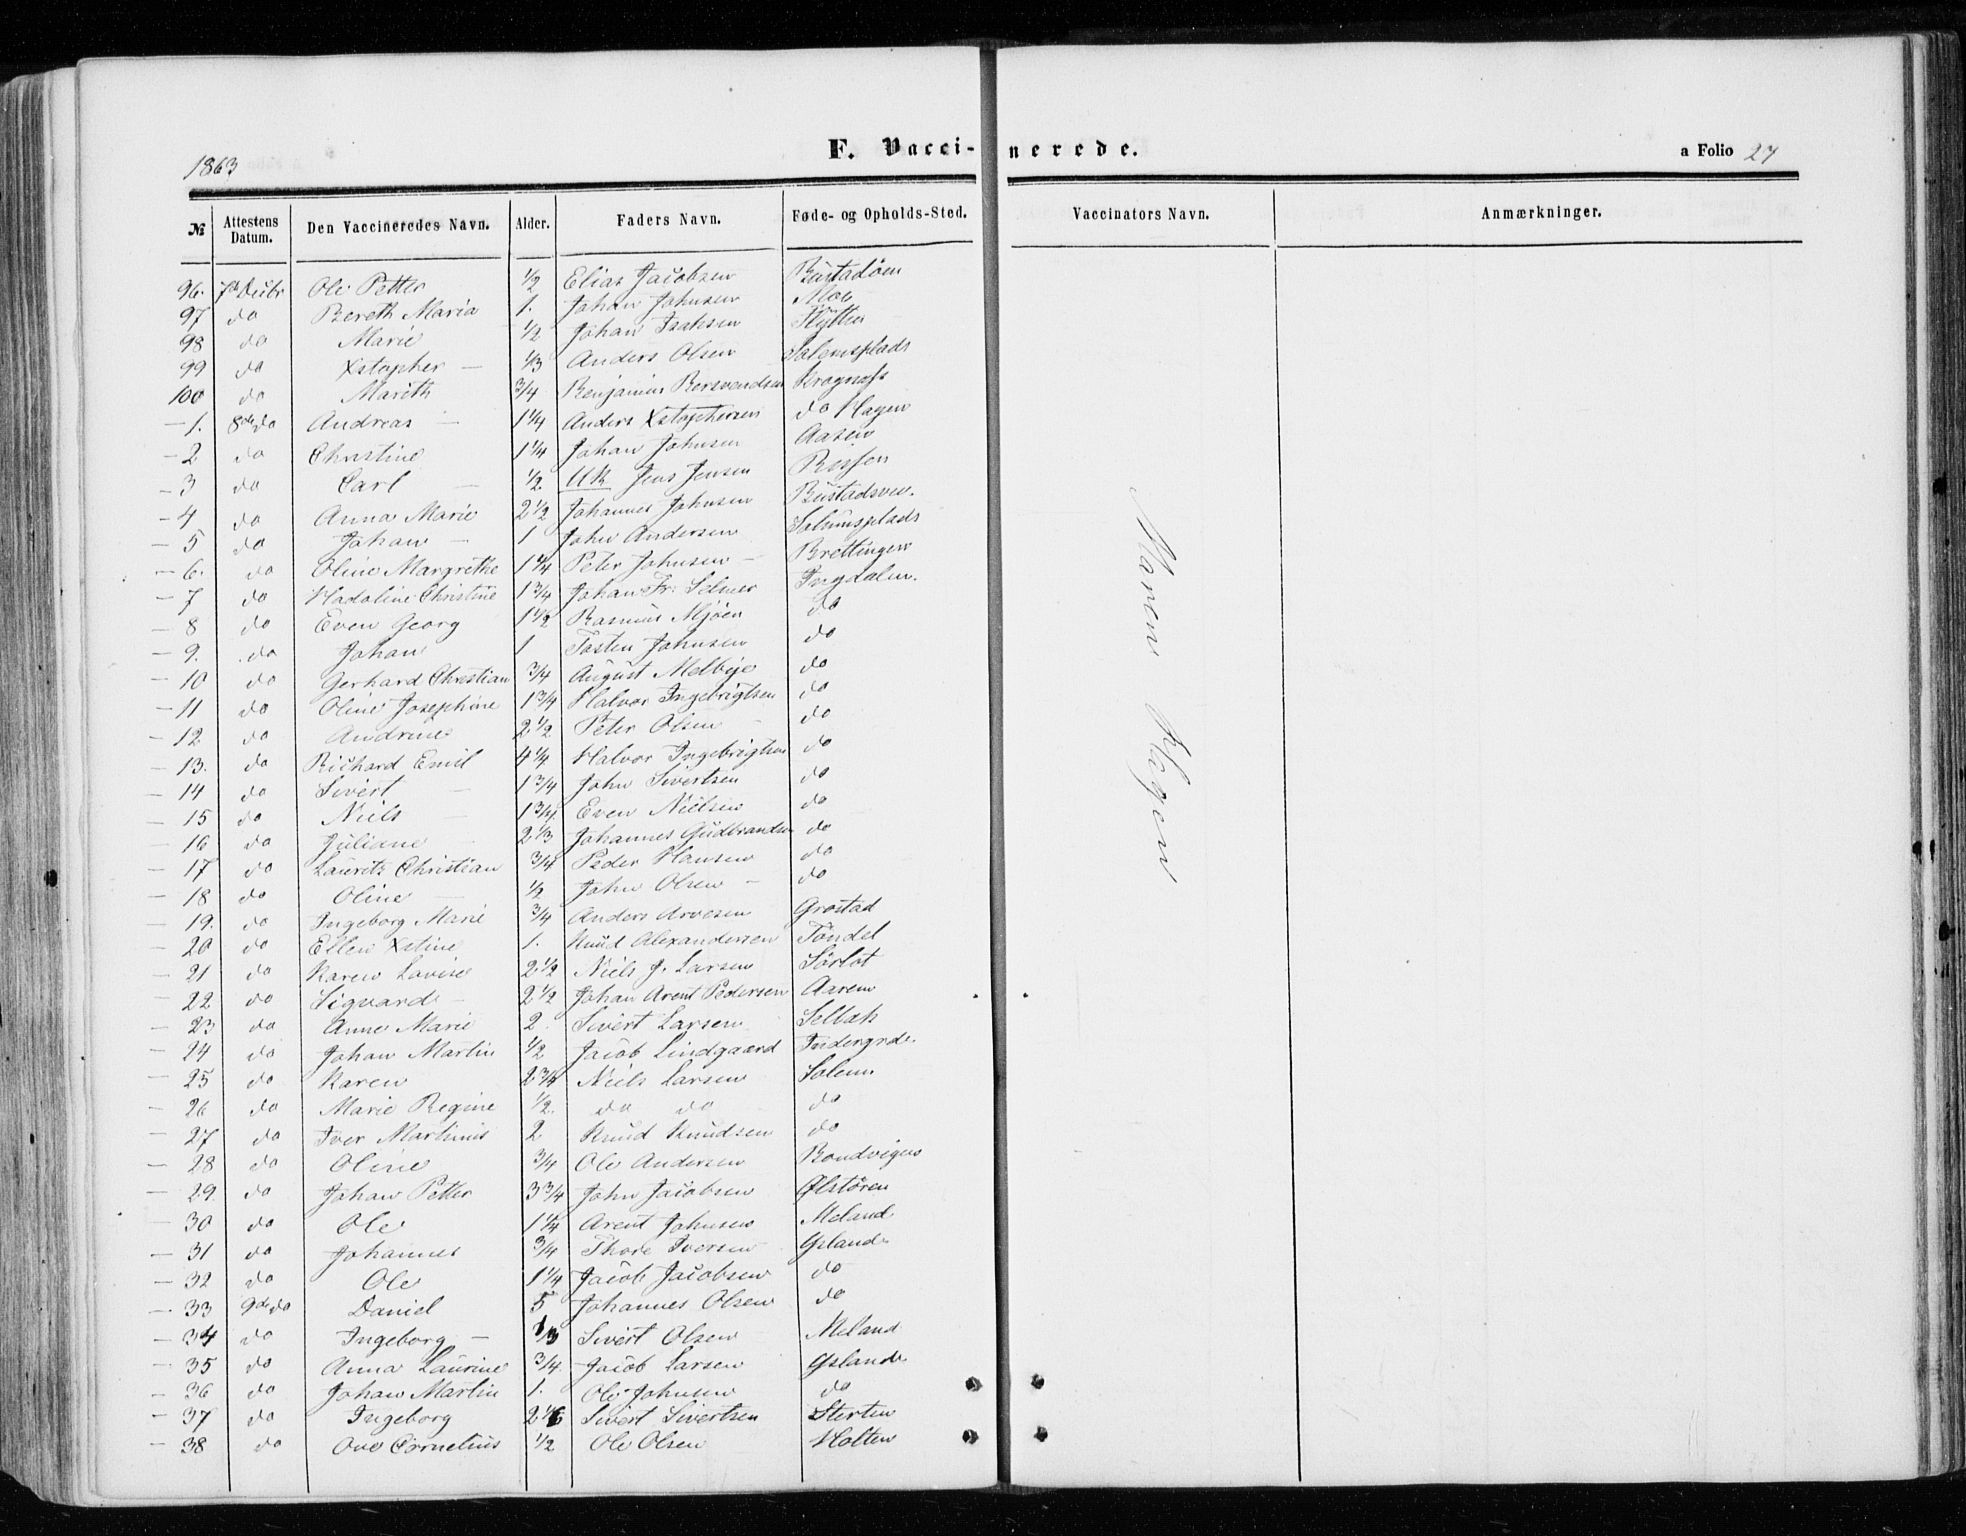 1863
F. Vaccinerede.
a Folio 27
№ Attestens Datum. Den Vaccineredes Navn. Alder. Faders Navn. Føde- og Opholds-Sted. Vaccinators Navn. Anmærkninger.
96. 7de Ole Petter 1/2 Elias Jacobsen Bustadöen
97 do Bereth Maria 1. Johan Johnsen Moe
98 do Marie 1/2 Johan Isaksen
99 do Xstopher 1/3 Anders Olsen Salemsplads
100 do Mareth 3/4 Benjamin Bersvendsen
— 1. 8de do Andreas 1 1/4 Anders Xstophersen do Hagen
— 2 do Christine 1 1/4 Johan Johnsen Aasen
— 3 do Carl 1/2 UK Jens Jensen
— 4 do Anna Marie 2 1/2 Johannes Johnsen
— 5 do Johan 1 John Andersen
— 6. do Oline Margrethe 1 1/4 Peter Johnsen Brettingen
— 7 do Christine 1 3/4 Johan Fr. Selmer Ingdalen.
— 8 do Even Georg 1 1/2 Rasmus Mjöen do
— 9. do Johan 1 Tosten Johnsen do
— 10 do Gerhard Christian 3/4 August Melbye do
— 11 do Oline Josephine 1 3/4 Halvor Ingebrigtsen do
— 12 do Andrine 2 1/2 Peter Olsen do
— 13. do Richard Emil 4 1/4 Halvor Ingebrigtsen do
— 14 do Sivert 1 3/4 John Sivertsen do
— 15 do Niels 1 3/4 Even Nielsen do
— 16 do Juliane 2 1/3 Johannes Gudbrandsen do
— 17 do Lauritz Christian 3/4 Peder Hansen do
— 18 do Oline 1/2 John Olsen do
— 19. do Ingeborg Marie 3/4 Anders Arvesen Grostad
— 20 do Ellen Xstine 1. Knud Alexandersen Töndel
— 21 do Karen Lovise 2 1/2 Niels J. Larsen Sörlot
— 22 do Sigvard 2 1/2 Johan Arent Pedersen Aarem
— 23 do Anne Marie 2. Sivert Larsen Selbek
— 24 do Johan Martin 1/2 Jacob Lindgaard
— 25 do Karen 2 3/4 Niels Larsen Salem
— 26 do Marie Regine 1/2. do do do
— 27 do Iver Martinus 2 Knud Knudsen do
— 28 do Oline 3/4 Ole Andersen
— 29. do Johan Petter 3 3/4 John Jacobsen Ølstören
— 30 do Ole 1 1/4 Arent Johnsen Meland
— 31 do Johannes 3/4 Thore Iversen
— 32 do Ole 1 1/4 Jacob Jacobsen do
— 33 9de do Daniel 5 Johannes Olsen do
— 34 do Ingeborg 1/3 Sivert Olsen Meland
— 35 do Anna Laurine 3/4 Jacob Larsen
— 36 do Johan Martin 1. Ole Johnsen do
— 37 do Ingeborg Sivert Sivertsen Sterten
— 38 do Ove Cornelius 1/2 Ole Olsen Holten
Maren Hagen